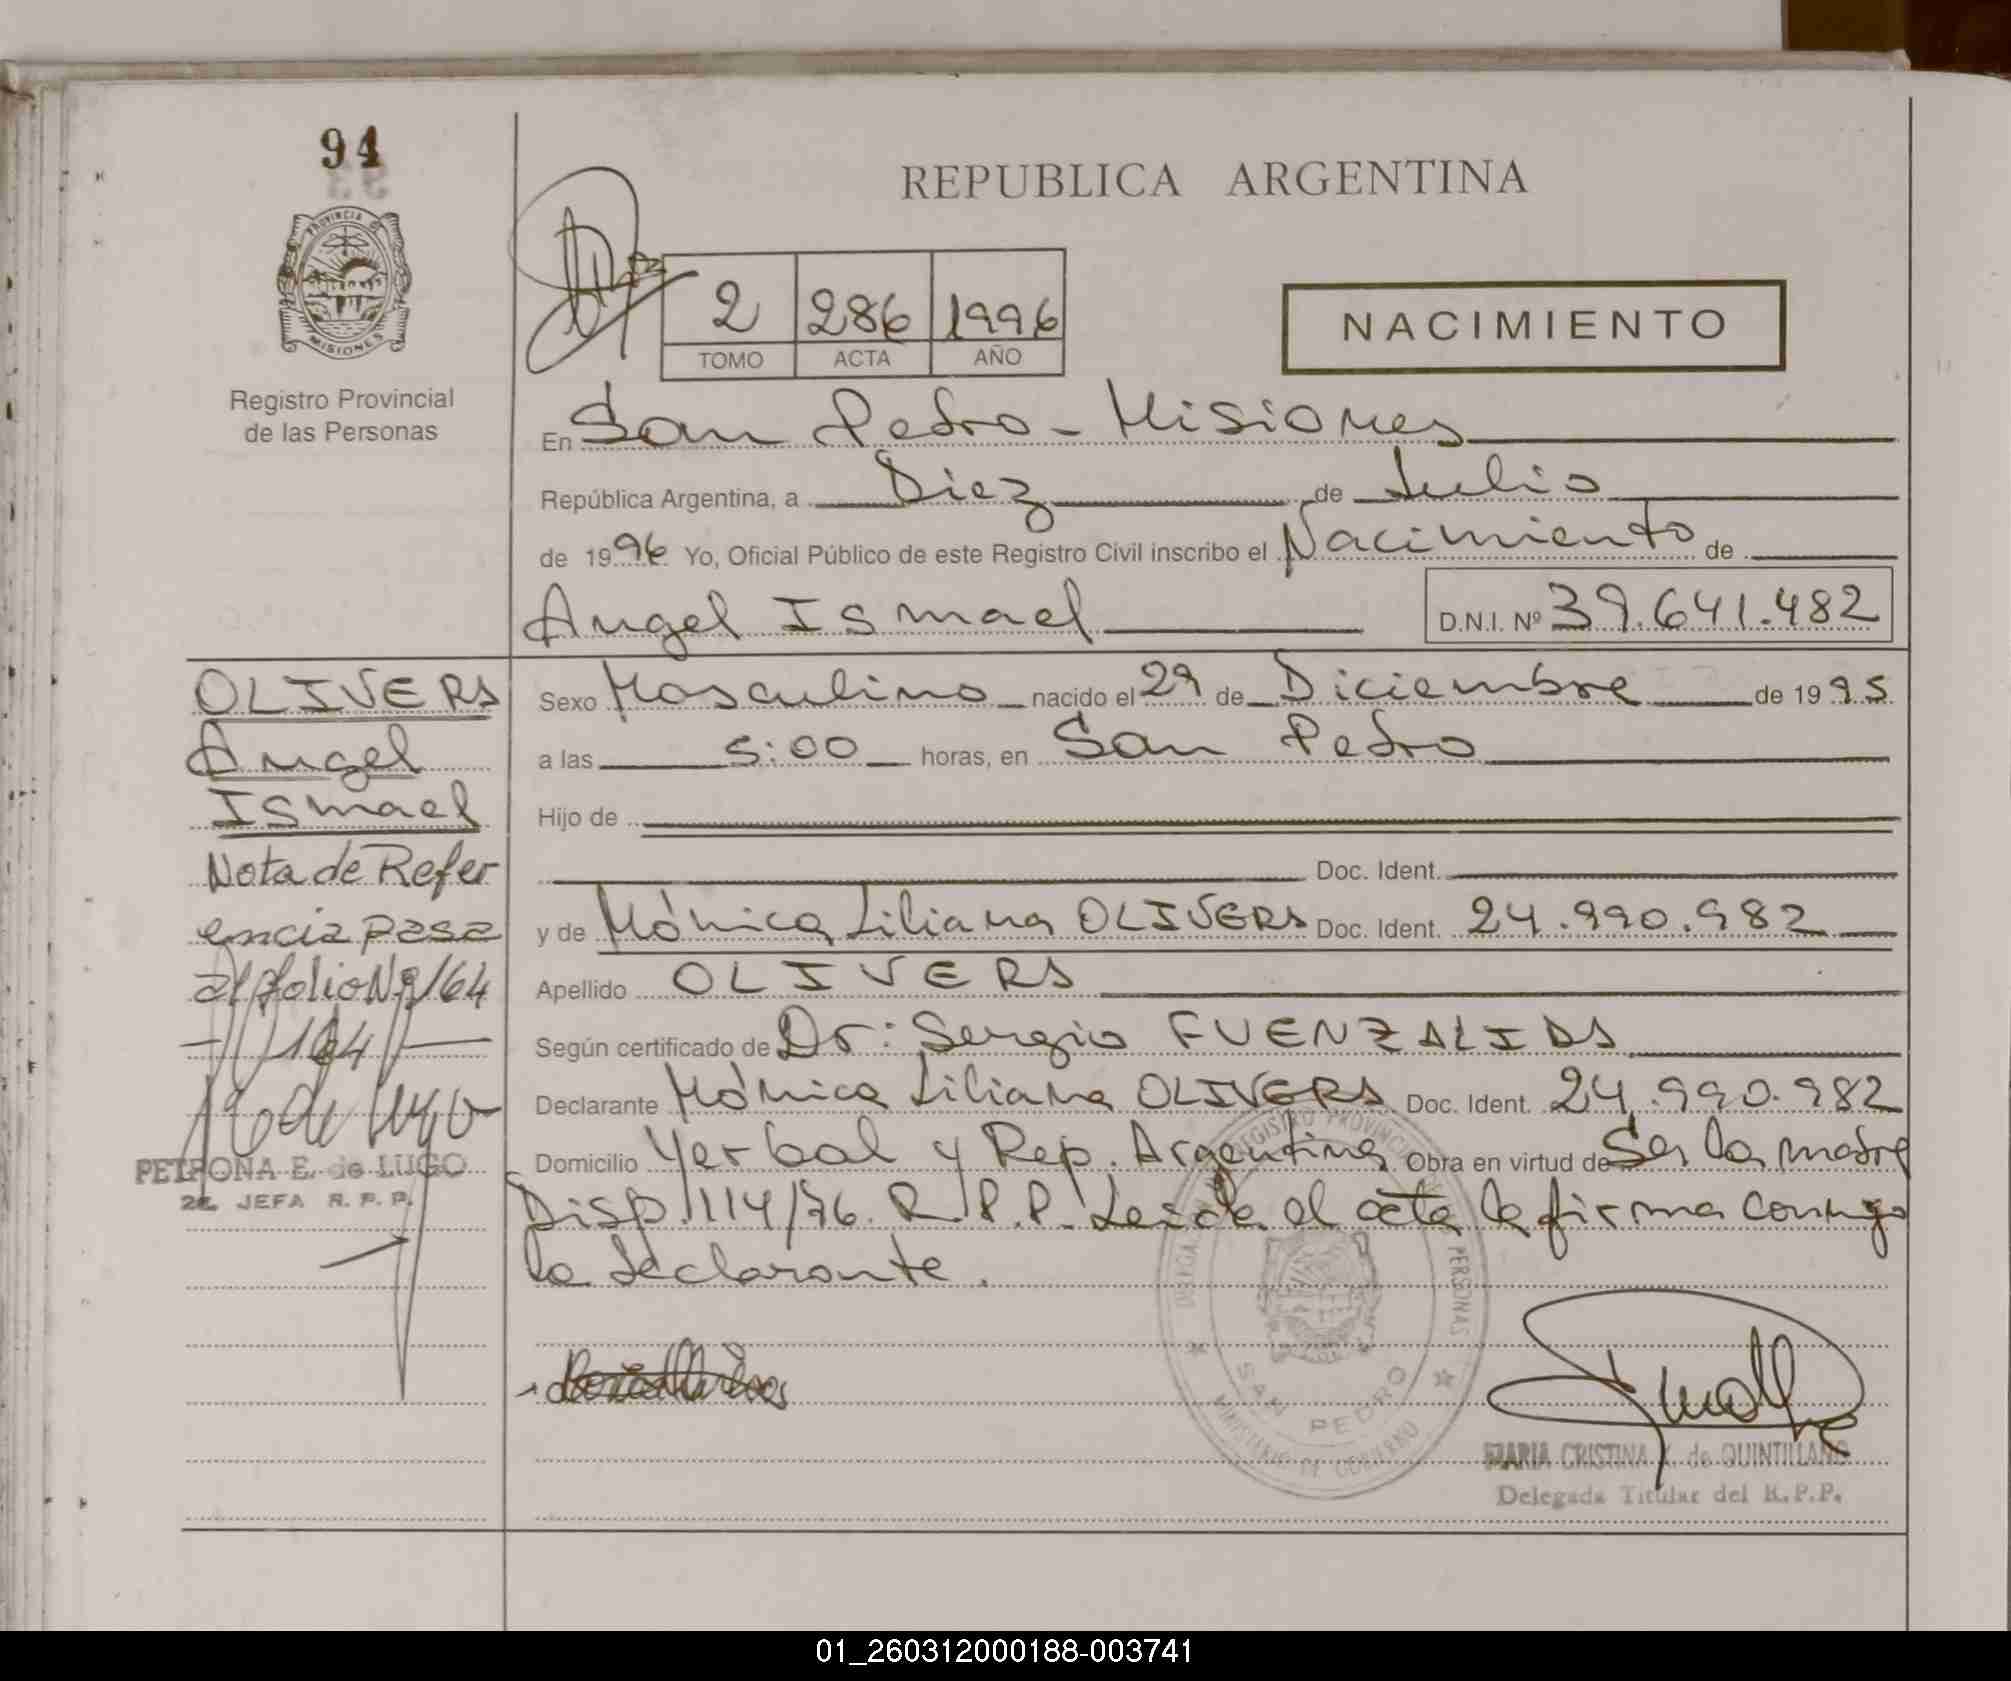 94
REPUBLICA ARGENTINA
PROVINCIA DE
MISIONES
Registro Provincial
de las Personas
2 286 1996
TOMO ACTA AÑO
NACIMIENTO
En San Pedro - Misiones
República Argentina, a Diez de Julio
de 1996 Yo, Oficial Público de este Registro Civil inscribo el Nacimiento de
Angel Ismael D.N.I. Nº 39.641.482
OLIVERA
Angel
Ismael
Nota de Refer
encia pasa
al folio Nº 164
- 164 -
PETRONA E. de LUGO
2a. JEFA R. P. P.
Sexo Masculino nacido el 29 de Diciembre de 1995
a las 5:00 horas, en San Pedro
Hijo de
Doc. Ident.
y de Mónica Liliana OLIVERA Doc. Ident. 24.990.982
Apellido OLIVERA
Según certificado de Dr: Sergio FUENZALIDA
Declarante Mónica Liliana OLIVERA Doc. Ident. 24.990.982
Domicilio Yerbal y Rep. Argentina Obra en virtud de Ser la madre
Disp. 114/76. R.P.P. Leida el acta la firma conmigo
la declarante.
REGISTRO PROVINCIAL DE LAS PERSONAS
SAN PEDRO
MINISTERIO DE GOBIERNO
MARIA CRISTINA K. de QUINTILLANO
Delegada Titular del R.P.P.
01_260312000188-003741